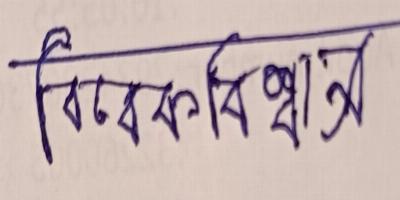 বিবেকবিশ্বাস